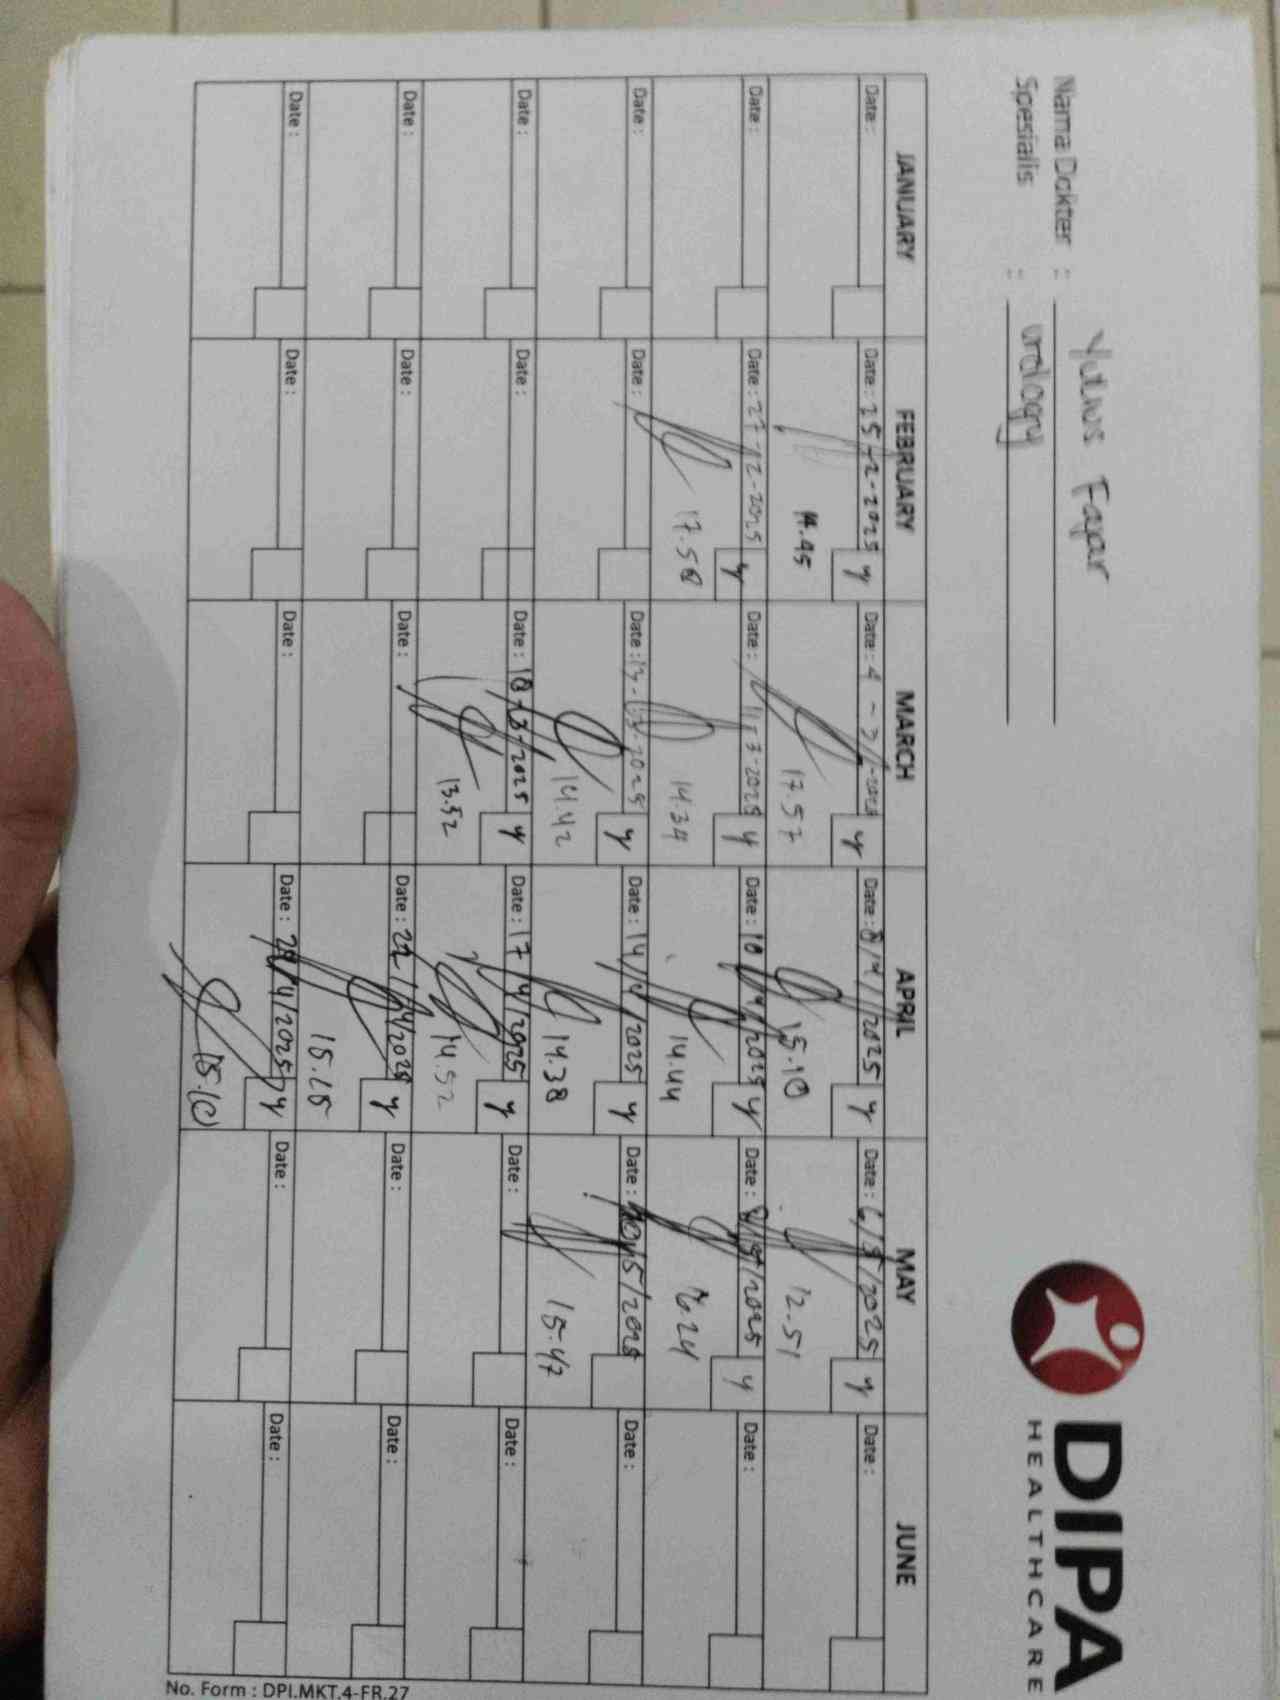 DIPA
HEALTHCARE
Nama Dokter : Yulius Fajar
Spesialis : urology
JANUARY FEBRUARY MARCH APRIL MAY JUNE
Date : Date : 25-2-2025 y Date : 4-3-2025 y Date : 8/4/2025 y Date : 6/5/2025 y Date :
14.45 17.57 15.10 12.51
Date : Date : 27-2-2025 y Date : 11-3-2025 y Date : 10/4/2025 y Date : 8/5/2025 y Date :
17.58 14.34 14.44 16.24
Date : Date : Date : 13-3-2025 y Date : 14/4/2025 y Date : /5/2025 Date :
14.42 14.38 15.47
Date : Date : Date : 18-3-2025 y Date : 17/4/2025 y Date : Date :
13.52 14.52
Date : Date : Date : Date : 22/4/2025 y Date : Date :
15.25
Date : Date : Date : Date : 29/4/2025 y Date : Date :
15.10
No. Form : DPI.MKT.4-FR.27